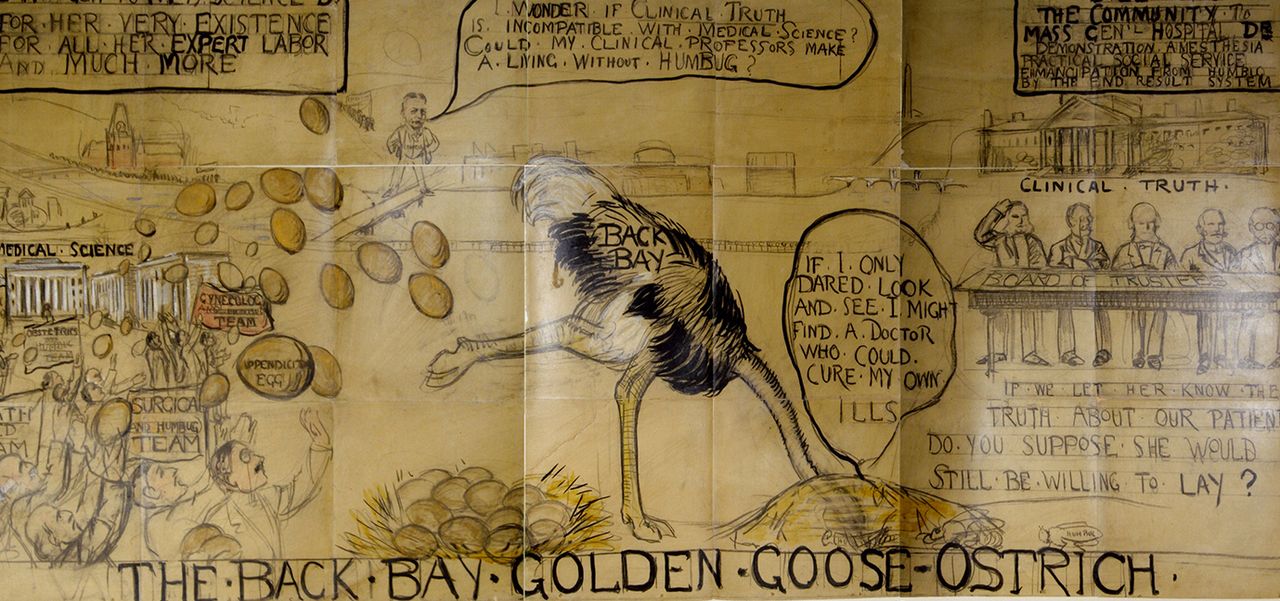 FOR HER VERY EXISTENCE
FOR ALL HER EXPERT LABOR
AND MUCH MORE
I WONDER IF CLINICAL TRUTH
IS INCOMPATIBLE WITH MEDICAL SCIENCE?
COULD MY CLINICAL PROFESSORS MAKE
A LIVING WITHOUT HUMBUG?
THE COMMUNITY TO
MASS GEN'L HOSPITAL
DEMONSTRATION ANESTHESIA
PRACTICAL SOCIAL SERVICE
EMANCIPATION FROM HUMBUG
BY THE END RESULT SYSTEM
MEDICAL·SCIENCE
GYNECOLOG
TEAM
OBSTETRICS
TEAM
APPENDICITI
EGG
SURGICAL
AND HUMBUG
TEAM
BACK
BAY
IF·I·ONLY
DARED·LOOK
AND·SEE·I·MIGHT
FIND·A·DOCTOR
WHO·COULD·
CURE·MY·OWN
ILLS
CLINICAL·TRUTH·
BOARD OF TRUSTEES
IF·WE·LET·HER·KNOW·THE
TRUTH·ABOUT·OUR·PATIEN
DO·YOU·SUPPOSE·SHE·WOULD
STILL·BE·WILLING·TO·LAY?
THE·BACK·BAY·GOLDEN·GOOSE-OSTRICH·